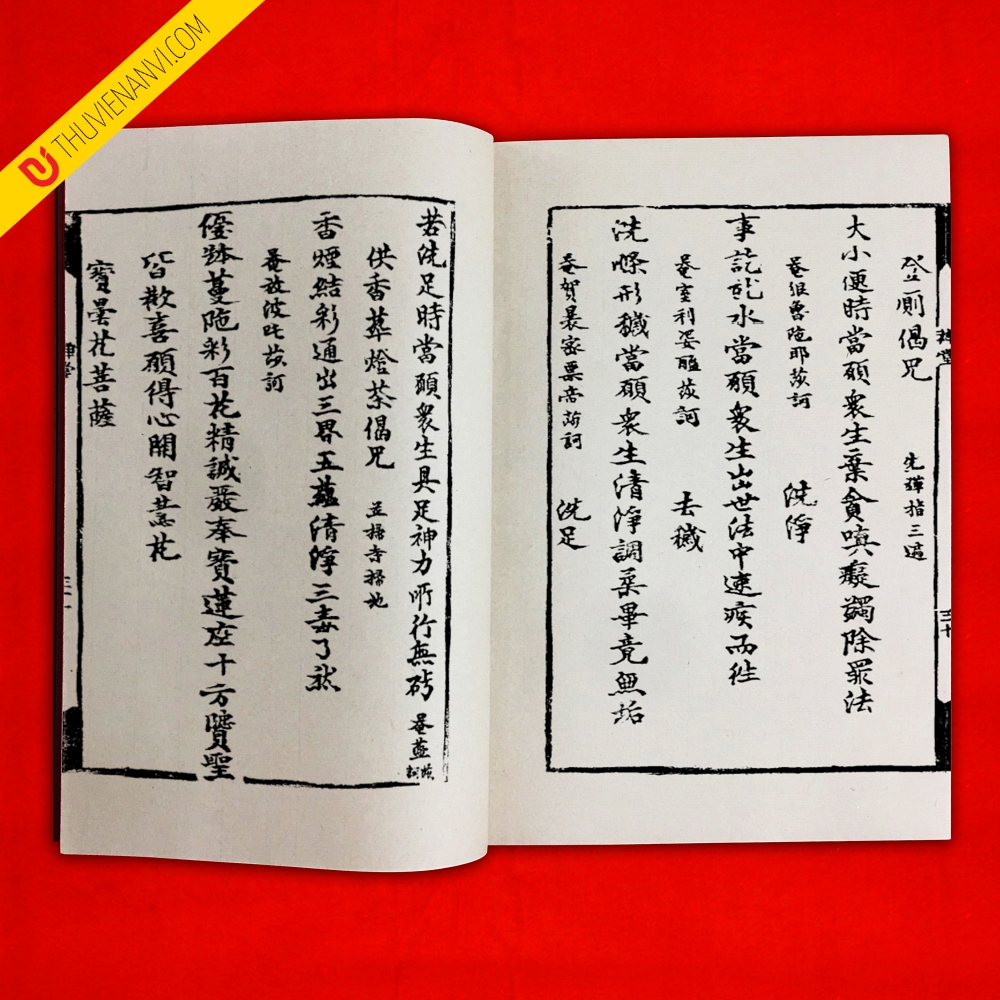 THUVIENANVI.COM
登厠偈咒 先彈指三遍
大小便時當願衆生棄貪嗔癡蠲除罪法
唵狠魯陀耶莎訶 洗淨
事訖就水當願衆生出世法中速疾而往
唵室利婆醯莎訶 去穢
洗滌形穢當願衆生清淨調柔畢竟無垢
唵賀曩密栗帝莎訶 洗足
三十
若洗足時當願衆生具足神力所行無碍 唵藍莎訶
供香華燈茶偈咒 並掃寺掃地
香煙結彩通出三界五蘊清淨三毒了然
唵放波吒莎訶
優鉢蔓陁彩百花精誠嚴奉寶蓮座十方賢聖
皆歡喜願得心開智慧花
寶曇花菩薩